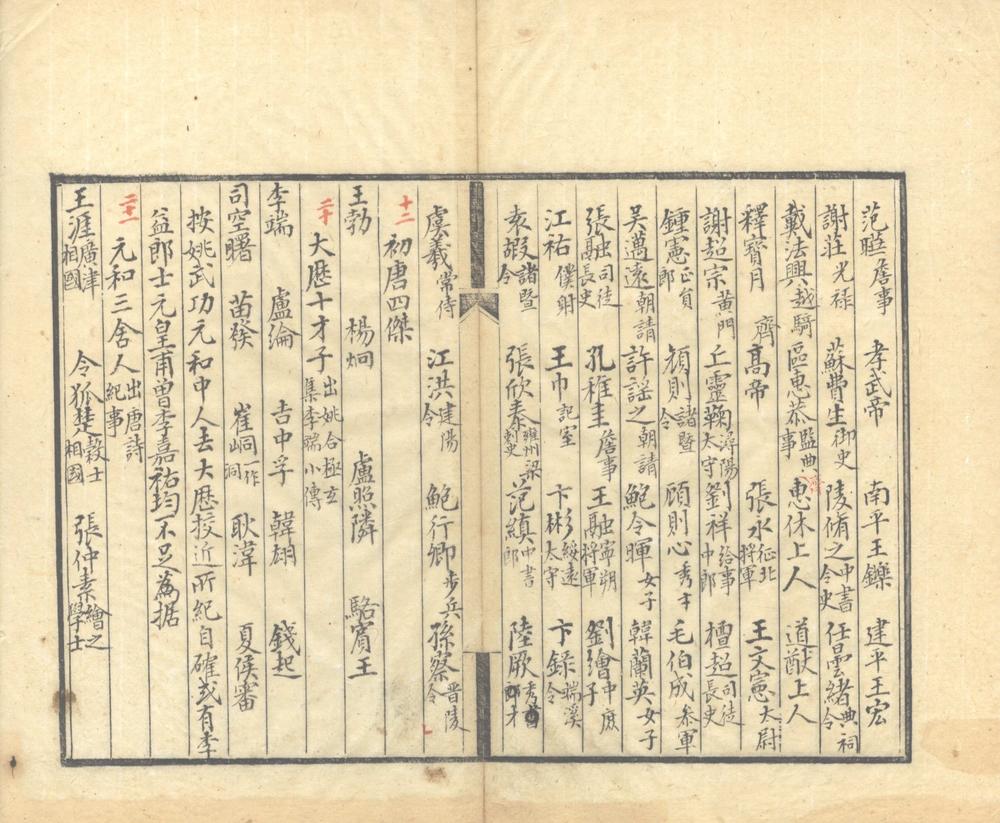 范曄詹事　孝武帝　南平王鑠　建平王宏
謝莊光祿　蘇費生御史　陵脩之中書令史　任曇緒典祠令
戴法興越騎　區惠恭監典事　惠休上人　道猷上人
釋寶月　齊高帝　張永征北將軍　王文憲太尉
謝超宗黃門　丘靈鞠潯陽太守　劉祥給事中郎　檀超司徒長史
鍾憲正員郎　顏則諸暨令　顧則心秀才　毛伯成叅軍
吳邁遠朝請　許謡之朝請　鮑令暉女子　韓蘭英女子
張融司徒長史　孔稚圭詹事　王融寧朔將軍　劉繪中庶子
江祐僕射　王巾記室　卞彬綏遠太守　卞錄端溪令
袁嘏諸暨令　張欣泰雍州梁刺史　范縝中書郎　陸厥秀才
虞羲常侍　江洪建陽令　鮑行卿步兵　孫察晋陵令
十二　初唐四傑
王勃　楊炯　盧照隣　駱賓王
二十　大歷十才子出姚合極玄集李端小傳
李端　盧綸　吉中孚　韓翃　錢起
司空曙　苗發　崔峒一作洞　耿湋　夏侯審
按姚武功元和中人去大歷挍近所紀自確或有李
益郎士元皇甫曾李嘉祐均不足為据
二十一　元和三舍人出唐詩紀事
王涯廣津相國　令狐楚殼士相國　張仲素繪之學士